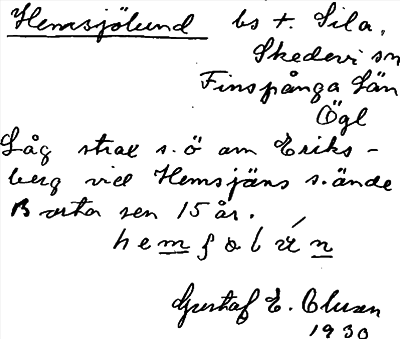 Hemsjölund bs t. Sila,
Skedevi sn
Finspånga Län
Ögl
Låg strax s.ö om Eriks-
berg vid Hemsjöns s.ände
Borta sen 15 år.
hemʃolún
Gustaf E.
1930